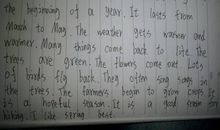 the beginning of a year. It lasts from
March to May. The weather gets warmer and
warmer. Many things come back to life. The
trees are green. The flowers come out. Lots
of birds fly back. They often sing songs in
the trees. The farmers begin to grow crops. It
is a hopeful season. It is a good season
hiking. I like spring best.